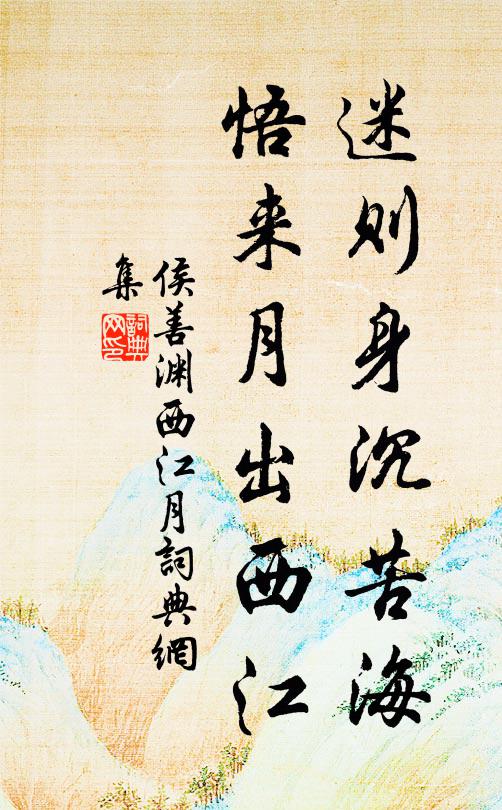 迷则身沉苦海
悟来月出西江
侯善渊西江月詞典網
集
詞典
网印